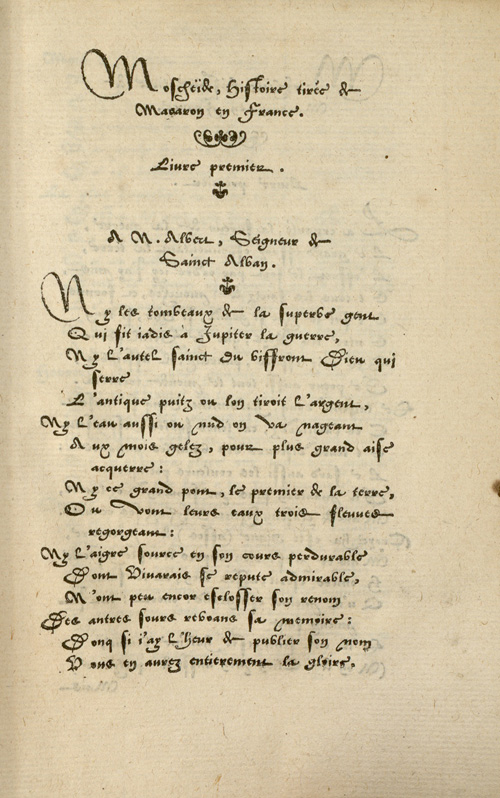 Moscheïde, Histoire tirée de
Macaron en France.
Livre premier.
A M. Albert, Seigneur de
Sainct Alban.
Ny les tombeaux de la superbe gent
Qui fit iadis à Jupiter la guerre,
Ny l'autel sainct du biffront Dieu qui
serre
L'antique puitz ou lon tiroit l'argent,
Ny l'eau aussi ou nud on va nageant
Aux mois gelez, pour plus grand aise
acquerre:
Ny ce grand pont, le premier de la terre,
Ou vont leurs eaux trois fleuves
regorgeant:
Ny l'aigre source en son cours perdurable
Dont Vivarais se repute admirable,
N'ont peu encor esclosser son renom
Des antres sours reboans sa memoire:
Donq si i'ay l'heur de publier son nom
Vous en aurez entierement la gloire,